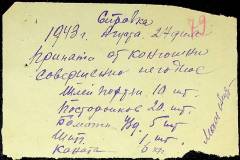 Справка
79
1943 г. Августа, 27 дня
Принята от конюшни
совершенно негодное
Шлей пордзи. 10 шт.
Посторонков 20 шт.
5 шт
1 шт.
Каната 6